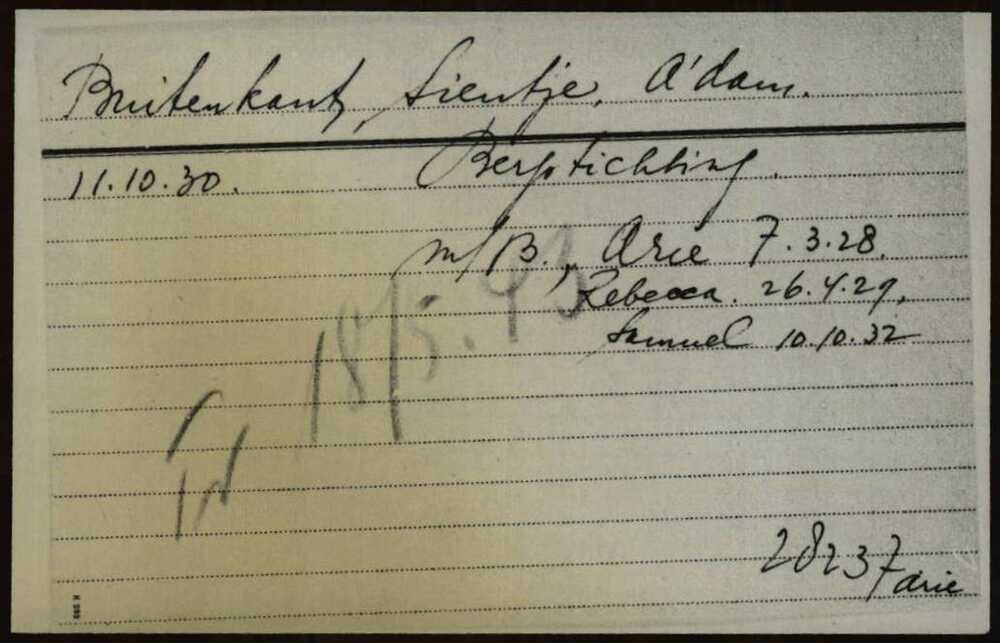 Buitenkant, Sientje, A'dam.
11.10.30. Bergstichting.
m/B., Arie 7.3.28.
Rebecca. 26.4.29.
Samuel 10.10.32
18/5.43
28237 arie